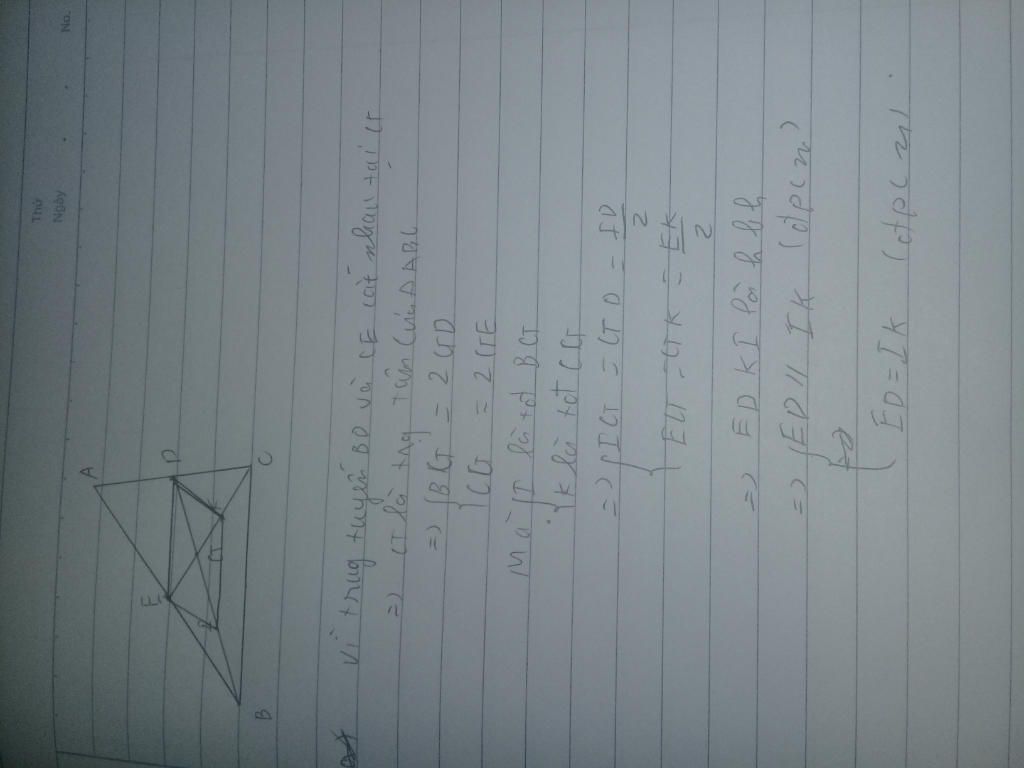 Thứ
Ngày
No.
A
E
D
B
C
Vì trung tuyến BD và CE cắt nhau tại G
=) G là trọng tâm của ΔABC
=) { BG = 2 GD
CG = 2 GE
Mà { I là tđ BG
K là tđ CG
=) { IG = GD = ID/2
EG = GK = EK/2
=) EDKI là hbh
=) { ED // IK (đpcm)
ED = IK (đpcm)